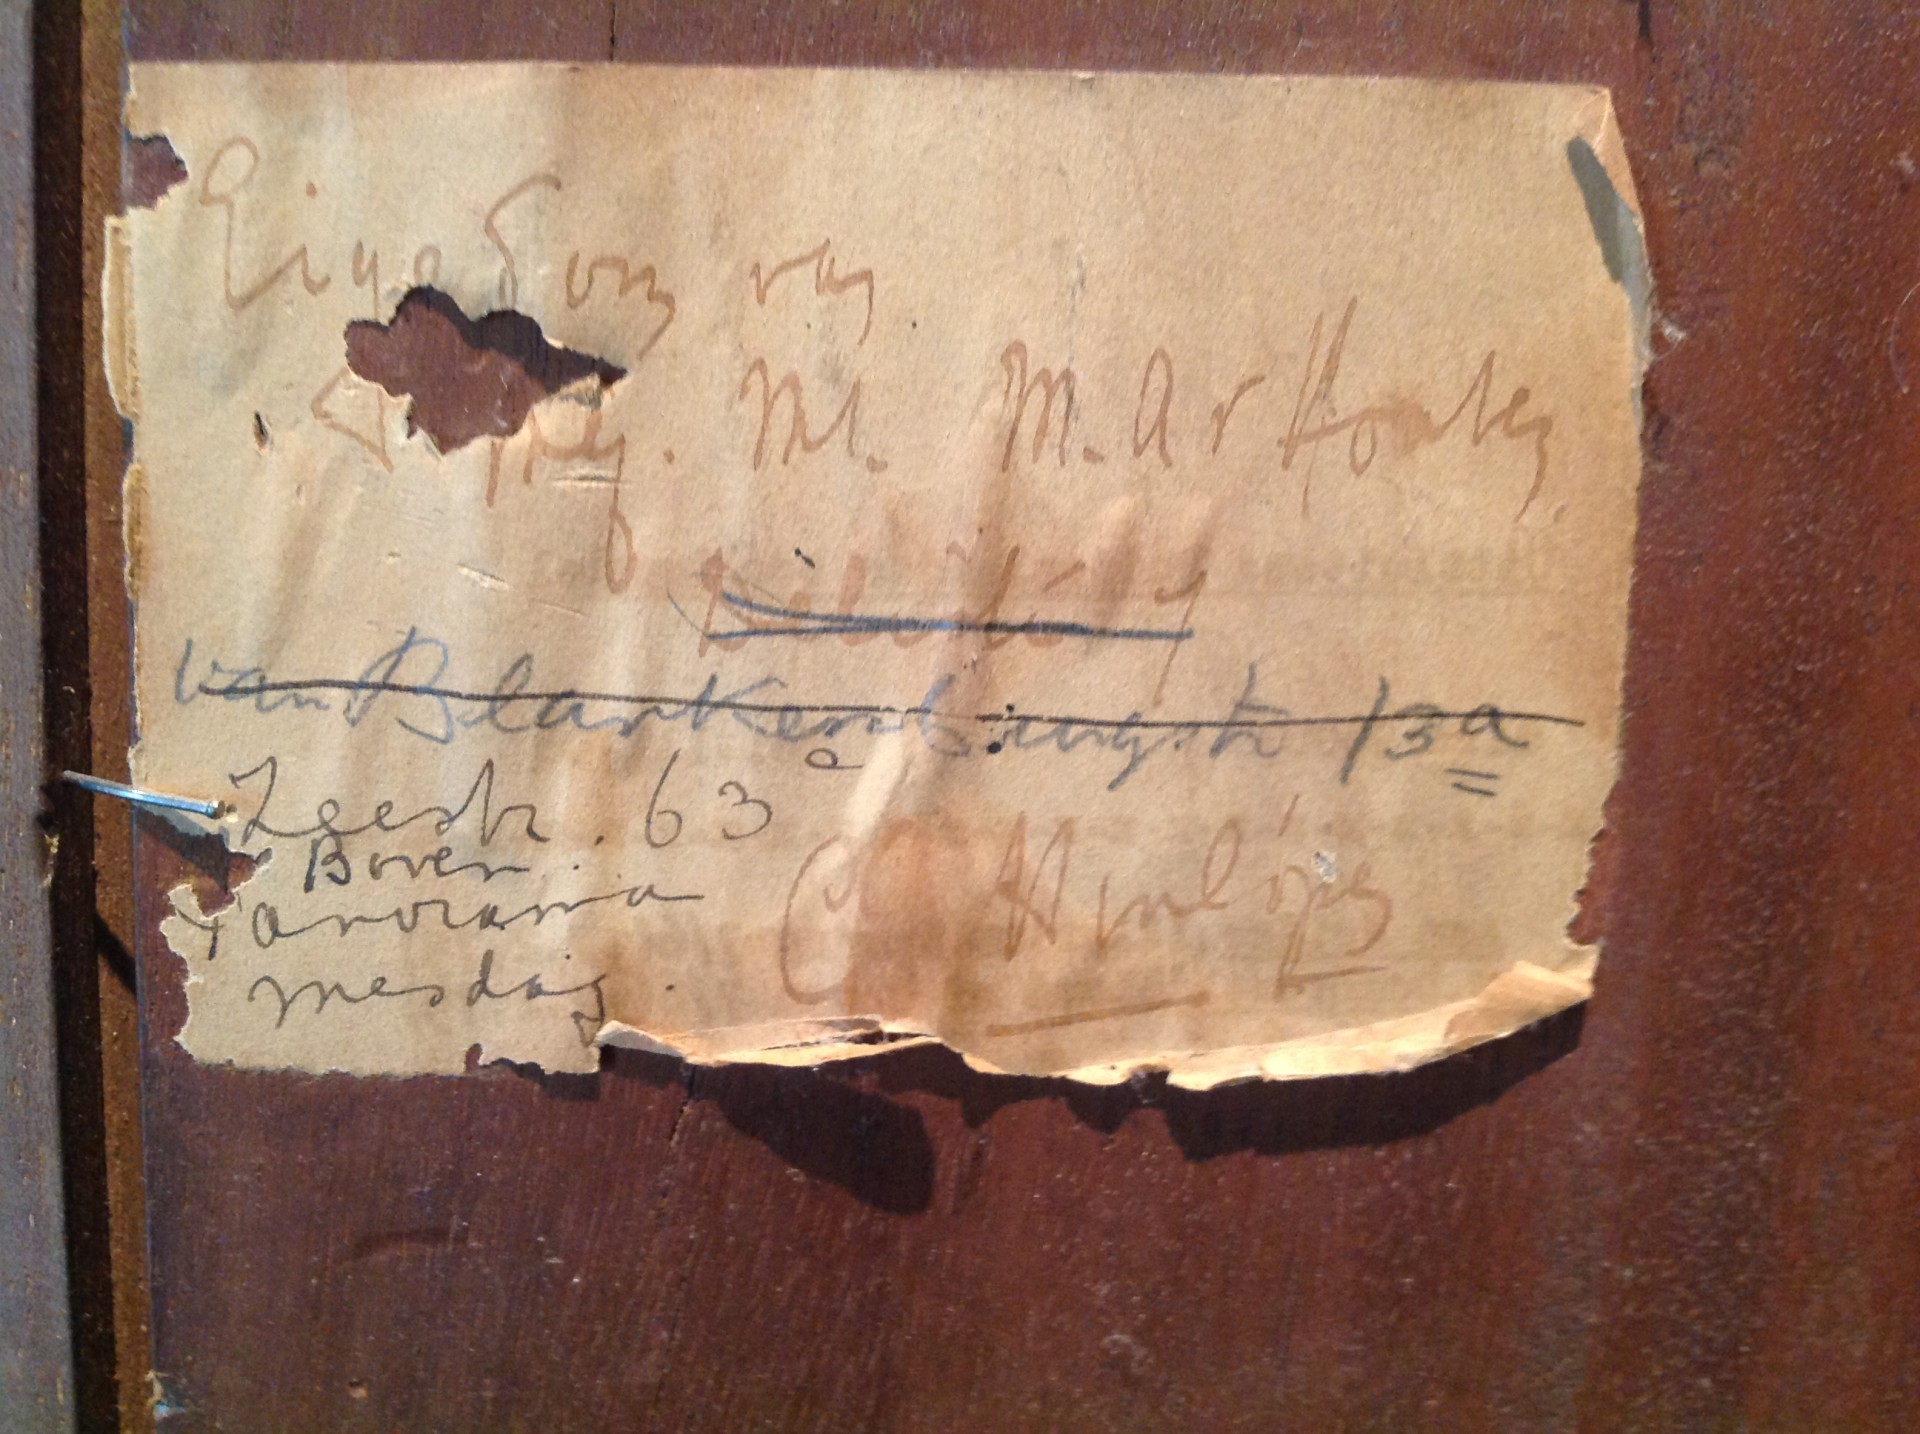 Eigedom van
Mej. Mr. M. A v Houten
van Blankenburgstr 13a
Zeestr. 63
Boven
Panorama
mesdag.